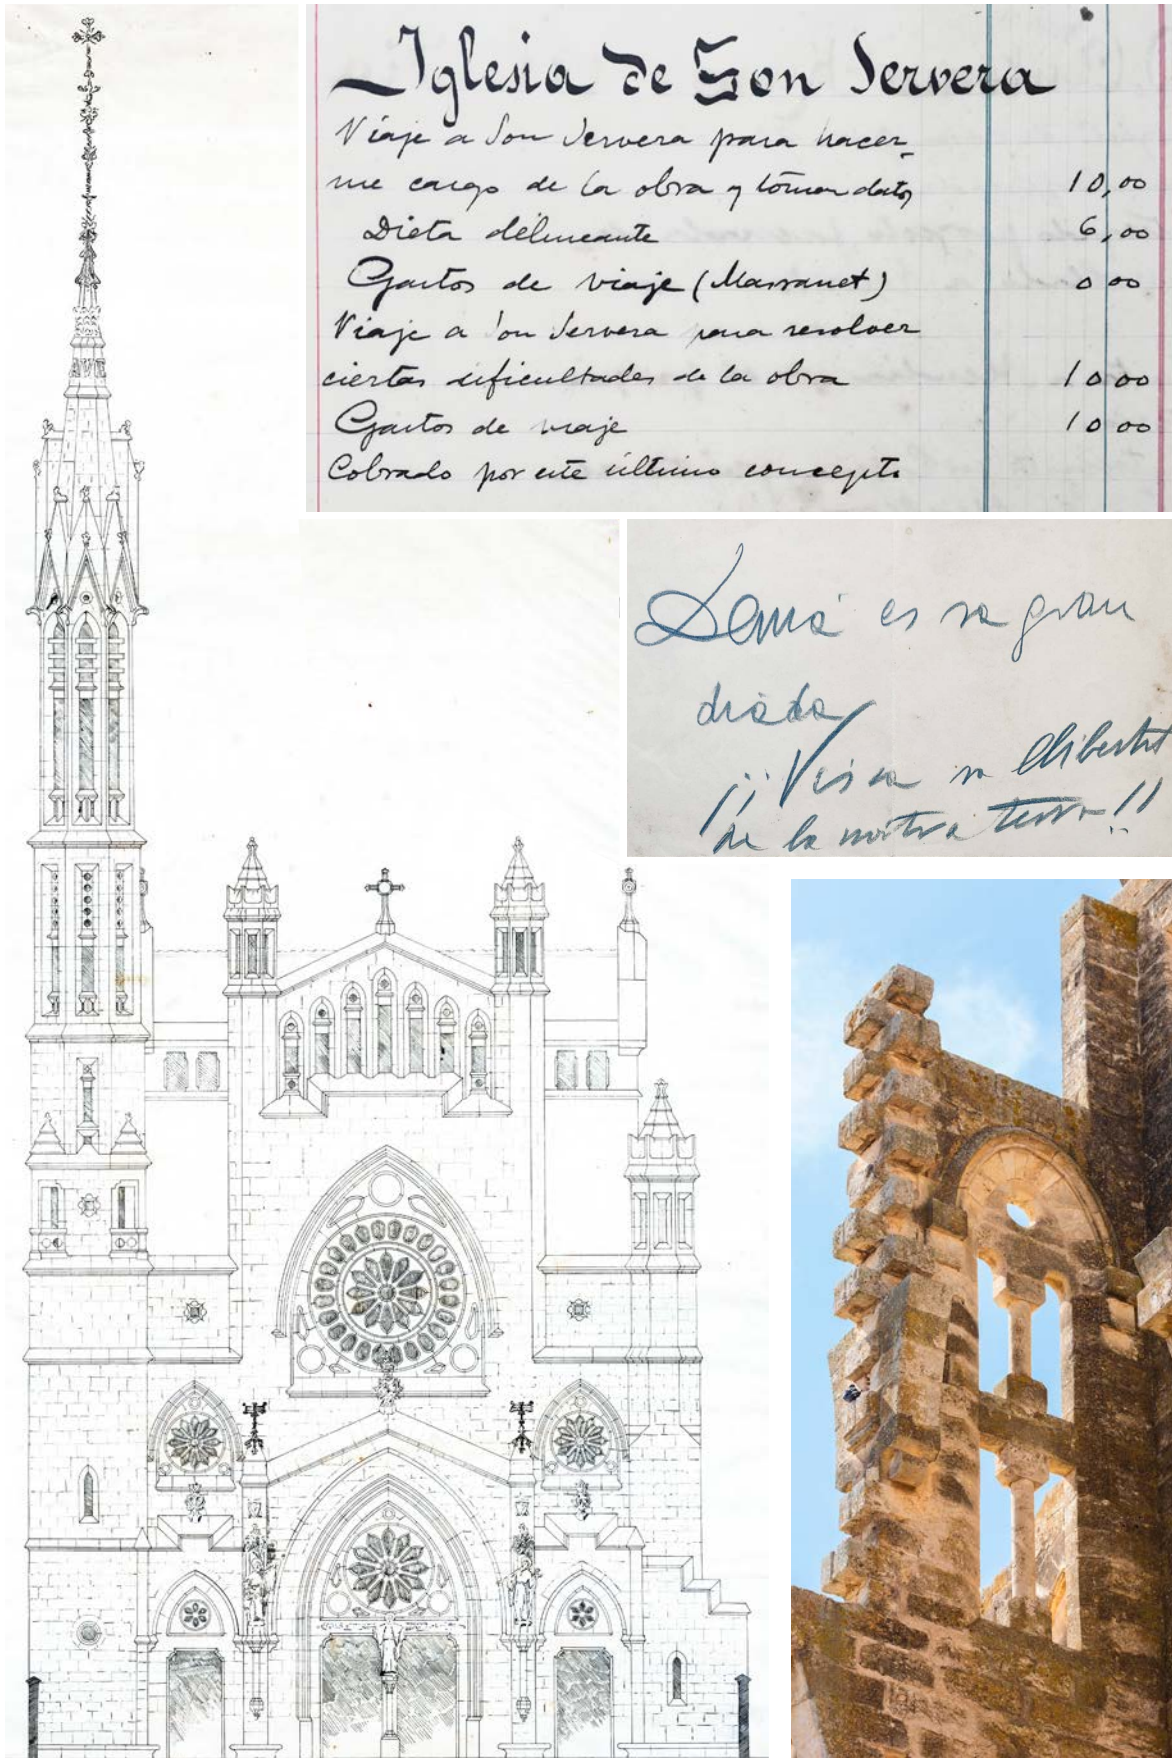 Iglesia de Son Servera
Viaje a Son Servera para hacer-
me cargo de la obra y tomar datos 10,00
Dieta delineante 6,00
Gastos de viaje (Massanet) 0 00
Viaje a Son Servera para resolver
ciertas dificultades de la obra 10 00
Gastos de viaje 10 00
Cobrado por este último concepto
Demà es sa gran
diada
¡¡Visca sa llibertat
de la nostra terra!!